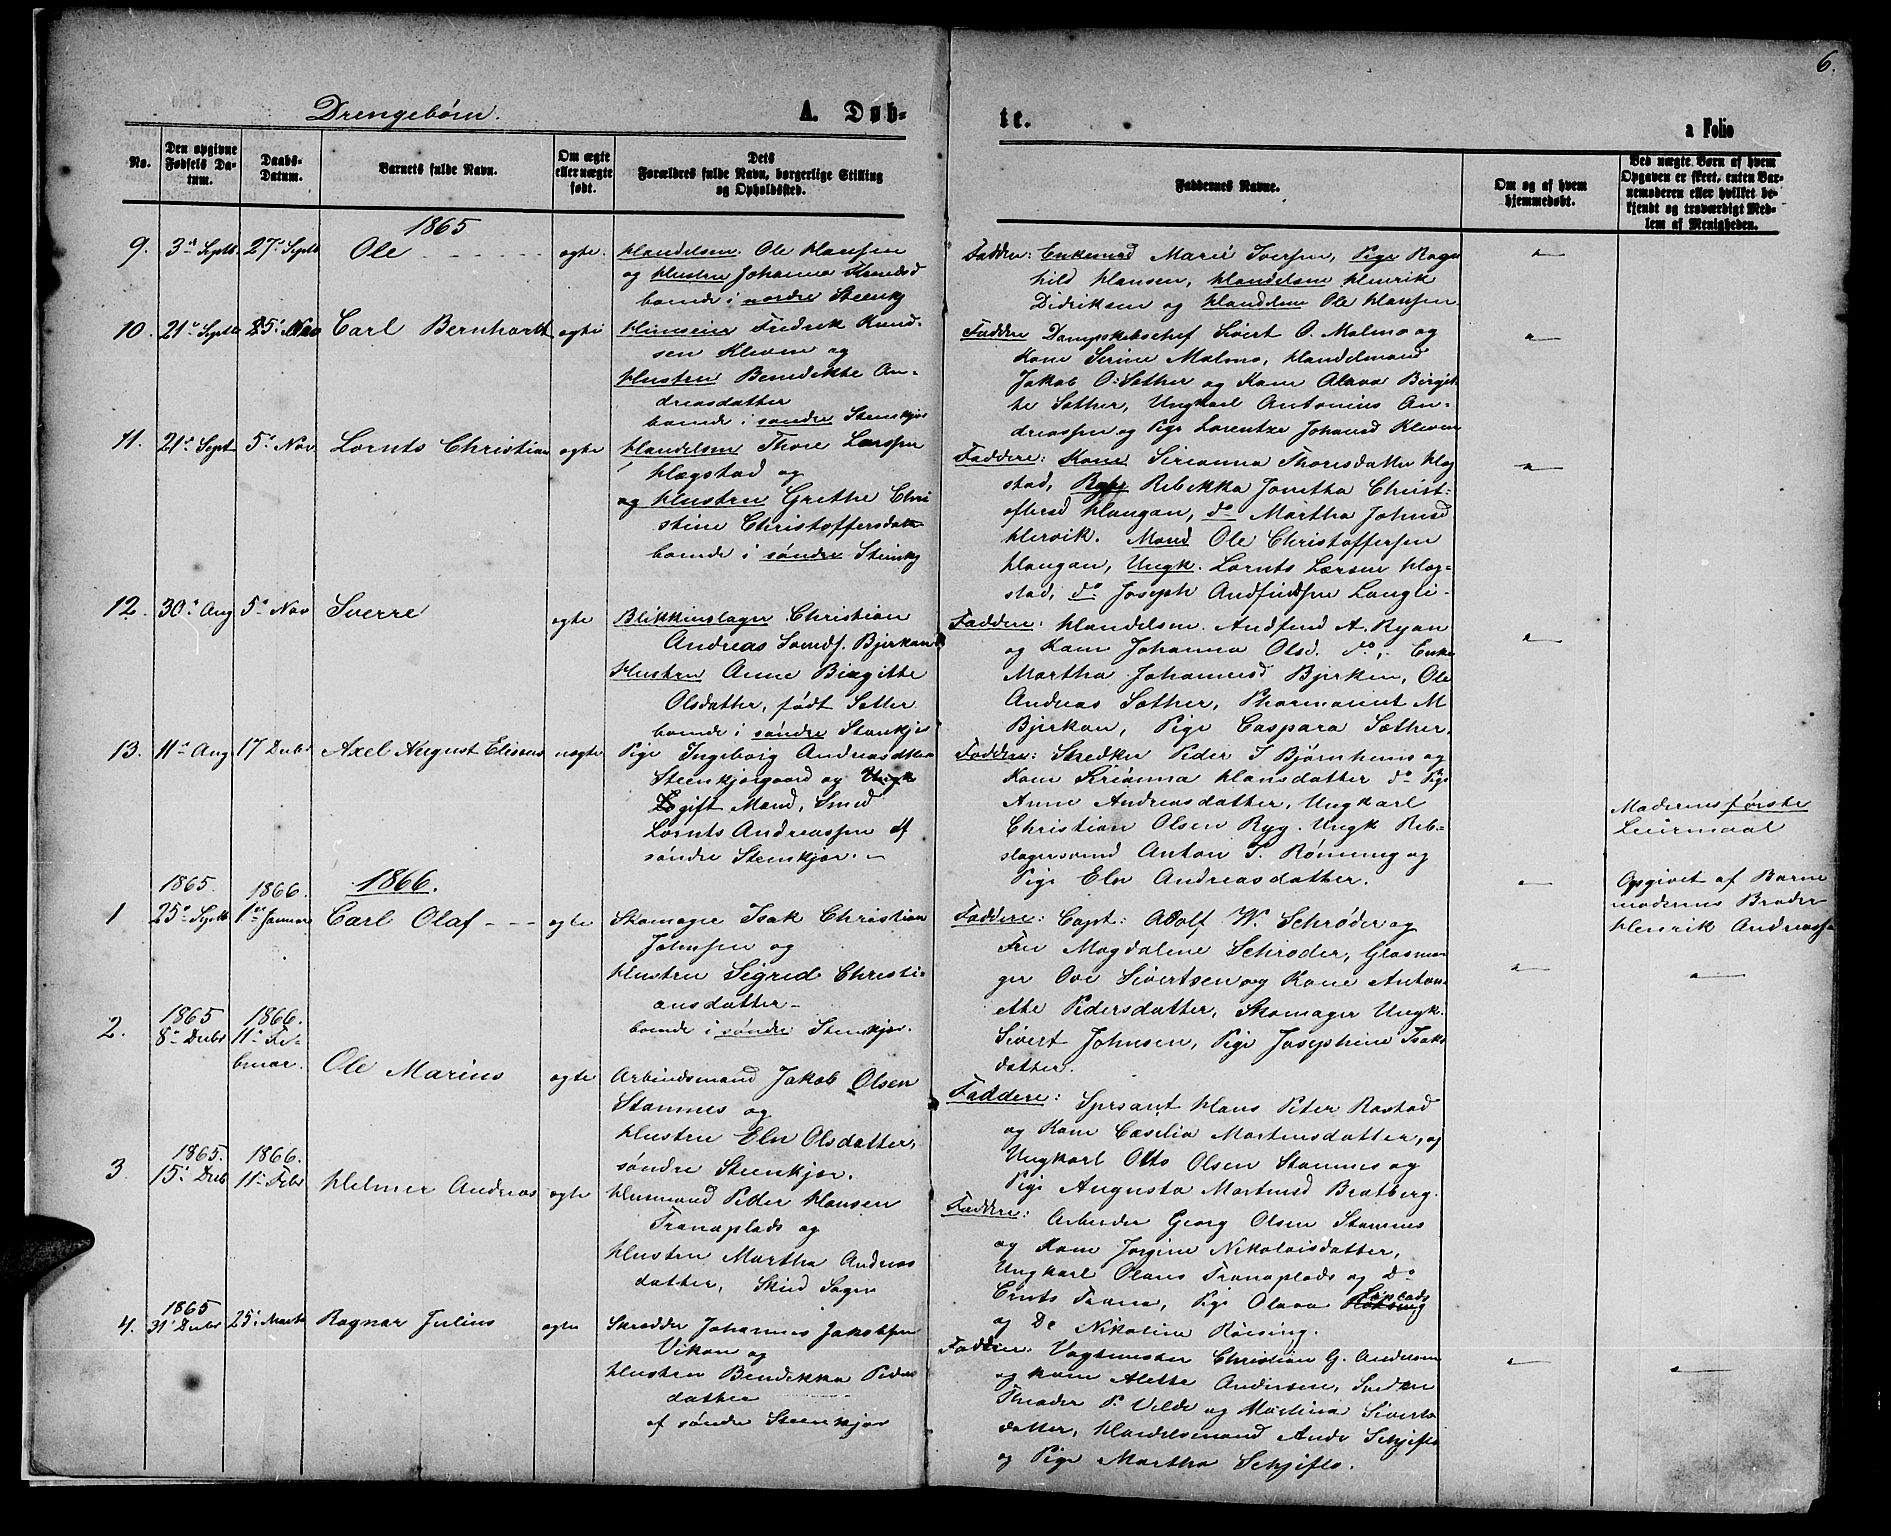 6.
Drengebørn. A. Døb-
te.
a Folio
No.
Den opgivne
Fødsels Da-
tum.
Daabs-
Datum.
Barnets fulde Navn.
Om ægte
eller uægte
født.
Dets
Forældres fulde Navn, borgerlige Stilling
og Opholdssted.
Faddernes Navne.
Om og af hvem
hjemmedøbt.
Ved uægte Børn af hvem
Opgaven er skeet, enten Bar-
nemoderen eller hvilket be-
kjendt og troværdigt Med-
lem af Menigheden.
1865
9. 3' Septb. 27' Septb Ole ægte.
Handelsm. Ole Hansen
og Hustru Johanna
boende i nordre Steenkj
Faddere: Enkemad Marie Iversen, Pige Ragn
hild Hansen, Handelsm Henrik
Didriksen og Handelsm Ole Hansen
10. 21' Septb 25' Nov Carl Bernhardt ægte
Huuseier Fredrik Knud-
sen Klevon og
Hustru Benedikte An-
dreasdatter
boende i søndre Steenkjær
Faddere Dampskibschef Sivert O. Malmo og
Kone Serine Malmo, Handelmand
Jakob O: Sæther og Kone Olava Birgit-
te Sæther, Ungkarl Antonius An-
dreassen og Pige Lorentze Johansd Klevon
11. 21' Sept 5' Nov. Lornts Christian ægte
Handelsm Thore Larssen
Hægstad og
og Hustru Grethe Chri
stine Christoffersdatt
boende i søndre Steinkj
Faddere: Kone Sirianna Thorisdatter Hæg
stad, Pige Rebekka Jonetha Christ-
offersd Haugan, do Martha Johnsd
Hervik. Mand Ole Christoffersen
Haugan, Ungk. Lornts Larsen Hæg-
stad, do Joseph Andfindsen Langli-
12. 30' Aug 5' Nov Sverre ægte
Blikkenslager Christian
Andreas Svends. Bjerkan
Hustru Anne Birgitte
Olsdatter, født Sæther
boende i søndre Steenkjær
Faddere: Handelsm. Andfind A. Ryan
og Kone Johanna Olsd. do, Enke
Martha Johannesd Bjerken, Ole
Andreas Sæther, Pharmaceut M
Bjerkan, Pige Caspara Sæther.
13. 11' Aug 17 Decbr Axel August Elisæus uægte
Pige Ingeborg Andreasdtter
Steenkjærgaard og Ungk
gift Mand, Smed
Lornts Andreassen af
søndre Steenkjær.
Faddere: Skrædker Peder I Bjørnheims og
Kone Sirianna Hansdatter do Pige
Anne Andreasdatter, Ungkarl
Christian Olsen Ryg. Ungk Reb-
slagersvend Anton P. Rønning og
Pige Elen Andreasdatter.
Moderens første
Leiermaal
Opgivet af Barne
moderens Broder
Henrik Andreassen
1865. 1866. 1866.
1 25' Septb 1ste Januar Carl Olaf ægte
Skomager Isak Christian
Johnsen og
Hustru Sigrid Christi-
ansdatter
boende i søndre Steenkjær.
Faddere: Capt: Adolf W. Schrøder og
Fru Magdaline Schrøder, Glasma-
ger Ove Sivertsen og Kone Anton-
ette Pedersdatter, Skomager Ungk.
Sivert Johnsen, Pige Josephine Isaks
datter.
1865 1866.
2. 8' Decbr 11' Fe-
bruar. Ole Marius ægte
Arbeidsmand Jakob Olsen
Stamnes og
Hustru Elen Olsdatter,
søndre Steenkjær.
Faddere: Serjant Hans Peter Rostad
og Kone Cæsilia Mortensdatter, og
Ungkarl Otto Olsen Stamnes og
Pige Augusta Mortensd Bratberg.
1865. 1866.
3. 15' Decb 11' Febr Helmer Andreas ægte
Husmand Peder Hansen
Tranaplads og
Hustru Martha Andreas
datter, Stud Sogn
Faddere: Arbeider Georg Olsen Stamnes
og Kone Jørgine Nikolaisdatter,
Ungkarl Olaus Tranaplads og Do
Ernts Trana, Pige Olava Røising
og Do Nikolina Røising.
1865
4. 31' Decbr 25' Marts Ragnar Julius ægte
Skrædder Johannes Jakobsen
Vikan og
Hustru Bendikka Peders
datter
af søndre Steenkjær
Faddere: Vagtmester Christian G. Andersen
og Kone Alette Andersen, Snedker
Theodor P. Velde og Martina Siverts
datter, Handelsmand Ande Schjeflo
og Pige Martha Schjeflo.